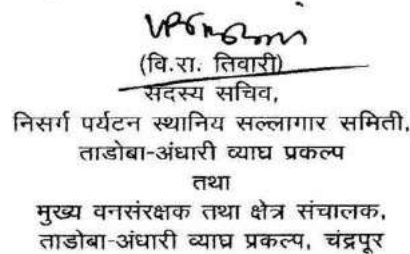 (वि.रा. तिवारी)
सदस्य सचिव,
निसर्ग पर्यटन स्थानिय सल्लागार समिती,
ताडोबा-अंधारी व्याघ्र प्रकल्प
तथा
मुख्य वनसंरक्षक तथा क्षेत्र संचालक,
ताडोबा-अंधारी व्याघ्र प्रकल्प, चंद्रपूर